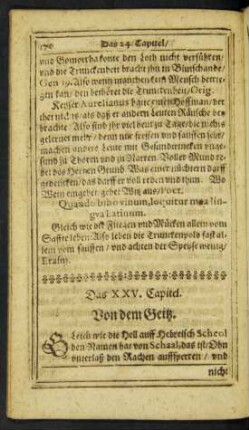 170 Das 24. Capitel/
und Gomorrha konte den Loth nicht verführen/
und die Trunckenheit bracht ihn in Blutschande/
Gen 19. Also wenn manchen kein Mensch betrie-
gen kan/ den bethöret die Trunckenheit/ Orig.
Keyser Aurelianus hatte einen Hoffman/ der
her nichts/ als daß er andern Leuten Räusche bey-
brachte Also sind ihr viel heut zu Tage die nichts
gelernet mehr/ denn nur fressen und sauffen
machen andere heute mit Gesundtrincken unge-
sund zu Thoren und zu Narren Voller Mund re-
det des Hertzen Grund Was einer nüchtern darff
gedencken/ das darff er voll reden und thun. Wo
Wein eingehet gehet Witz aus/
Quando bibo vinum, loquitur mea lin-
gva Latinum.
Gleich wie die Fliegen und Mücken allein vom
Safft leben Also leben die Trunckenpolt fast al-
lein vom sauffen/ und achten der Speise wenig/
Erasm.
Das XXV. Capitel.
Von dem Geitz.
Gleich wie die Hell auff Hebreisch Scheol
den Namen hat von Schaal, das ist/ Ohn
unterlaß den Rachen auffsperren/ und
nicht